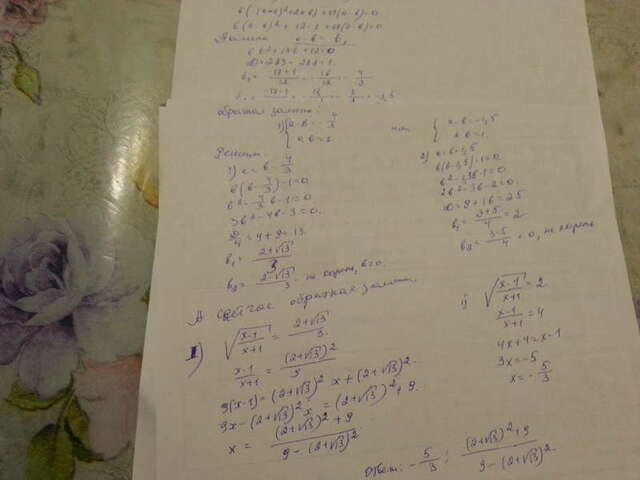 6(a-b)²+12·1+17(a-b)=0
Замена a-b=b₁
6b²+17b+12=0
D=289-288=1.
обратная замена:
1) { a-b=-4/3
ab=1
или { a-b=-1,5
ab=1,
Решим:
1) a=b-4/3
b(b-4/3)-1=0
b²-4/3b-1=0
3b²-4b-3=0.
D/4=4+9=13.
b₁=(2+√13)/3
b₂=(2-√13)/3 не корень, b≥0.
2) a=b-1,5
b(b-1,5)-1=0
b²-1,5b-1=0
2b²-3b-2=0
D=9+16=25
b₁=(3+5)/4=2
b₂=(3-5)/4<0, не корень
А сейчас обратная замена.
1) √((x-1)/(x+1))=(2+√13)/3
(x-1)/(x+1)=(2+√13)²/9
9(x-1)=(2+√13)²x+(2+√13)².
9x-(2+√13)²x=(2+√13)²+9.
x=((2+√13)²+9)/(9-(2+√13)²)
√((x-1)/(x+1))=2
(x-1)/(x+1)=4
4x+4=x-1
3x=-5
x=-5/3
Ответ: -5/3; ((2+√13)²+9)/(9-(2+√13)²)